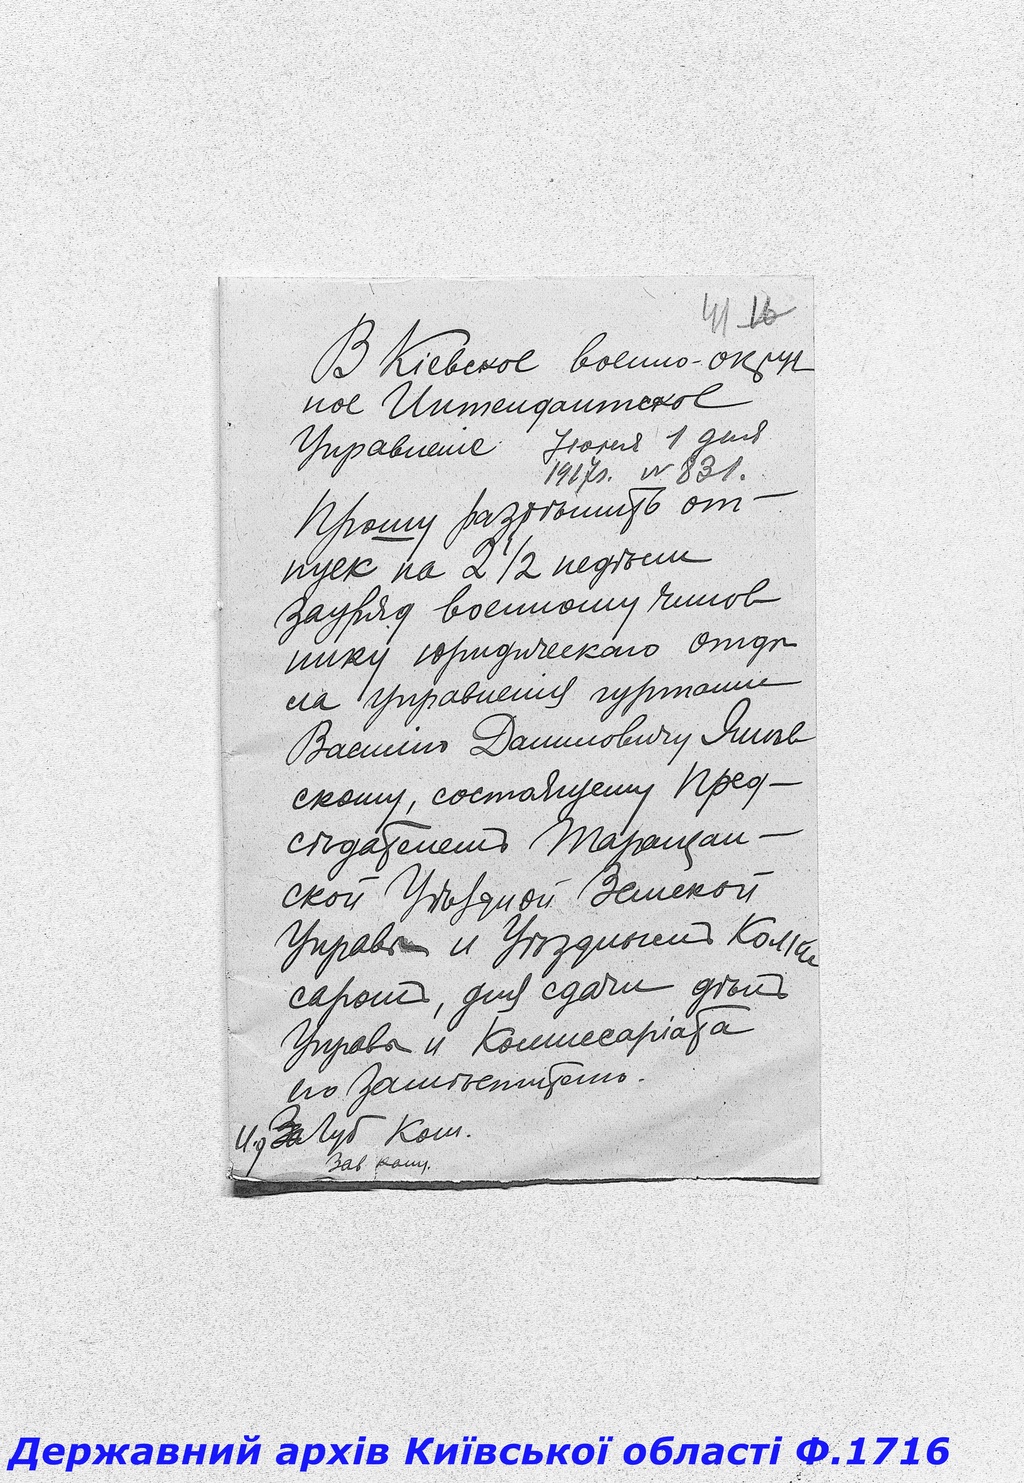 41 16
В Кіевское военно-окруж
ное Интендантское
Управленіе Июня 1 дня
1917г. № 831.
Прошу разрѣшить от-
пуск на 2 1/2 недѣли
зауряд военному чинов
нику юридическаго отдѣ
ла управления гуртами
Василію Даниловичу
скому, состоящему Пред-
сѣдателемъ Таращан-
ской Уѣздной Земской
Управы и Уѣзднымъ Комис
саромъ, для сдачи дѣлъ
Управы и Комиссаріата
его Замѣстителю.
И.д. Губ Ком.
Зав канц.
Державний архів Київської області Ф.1716